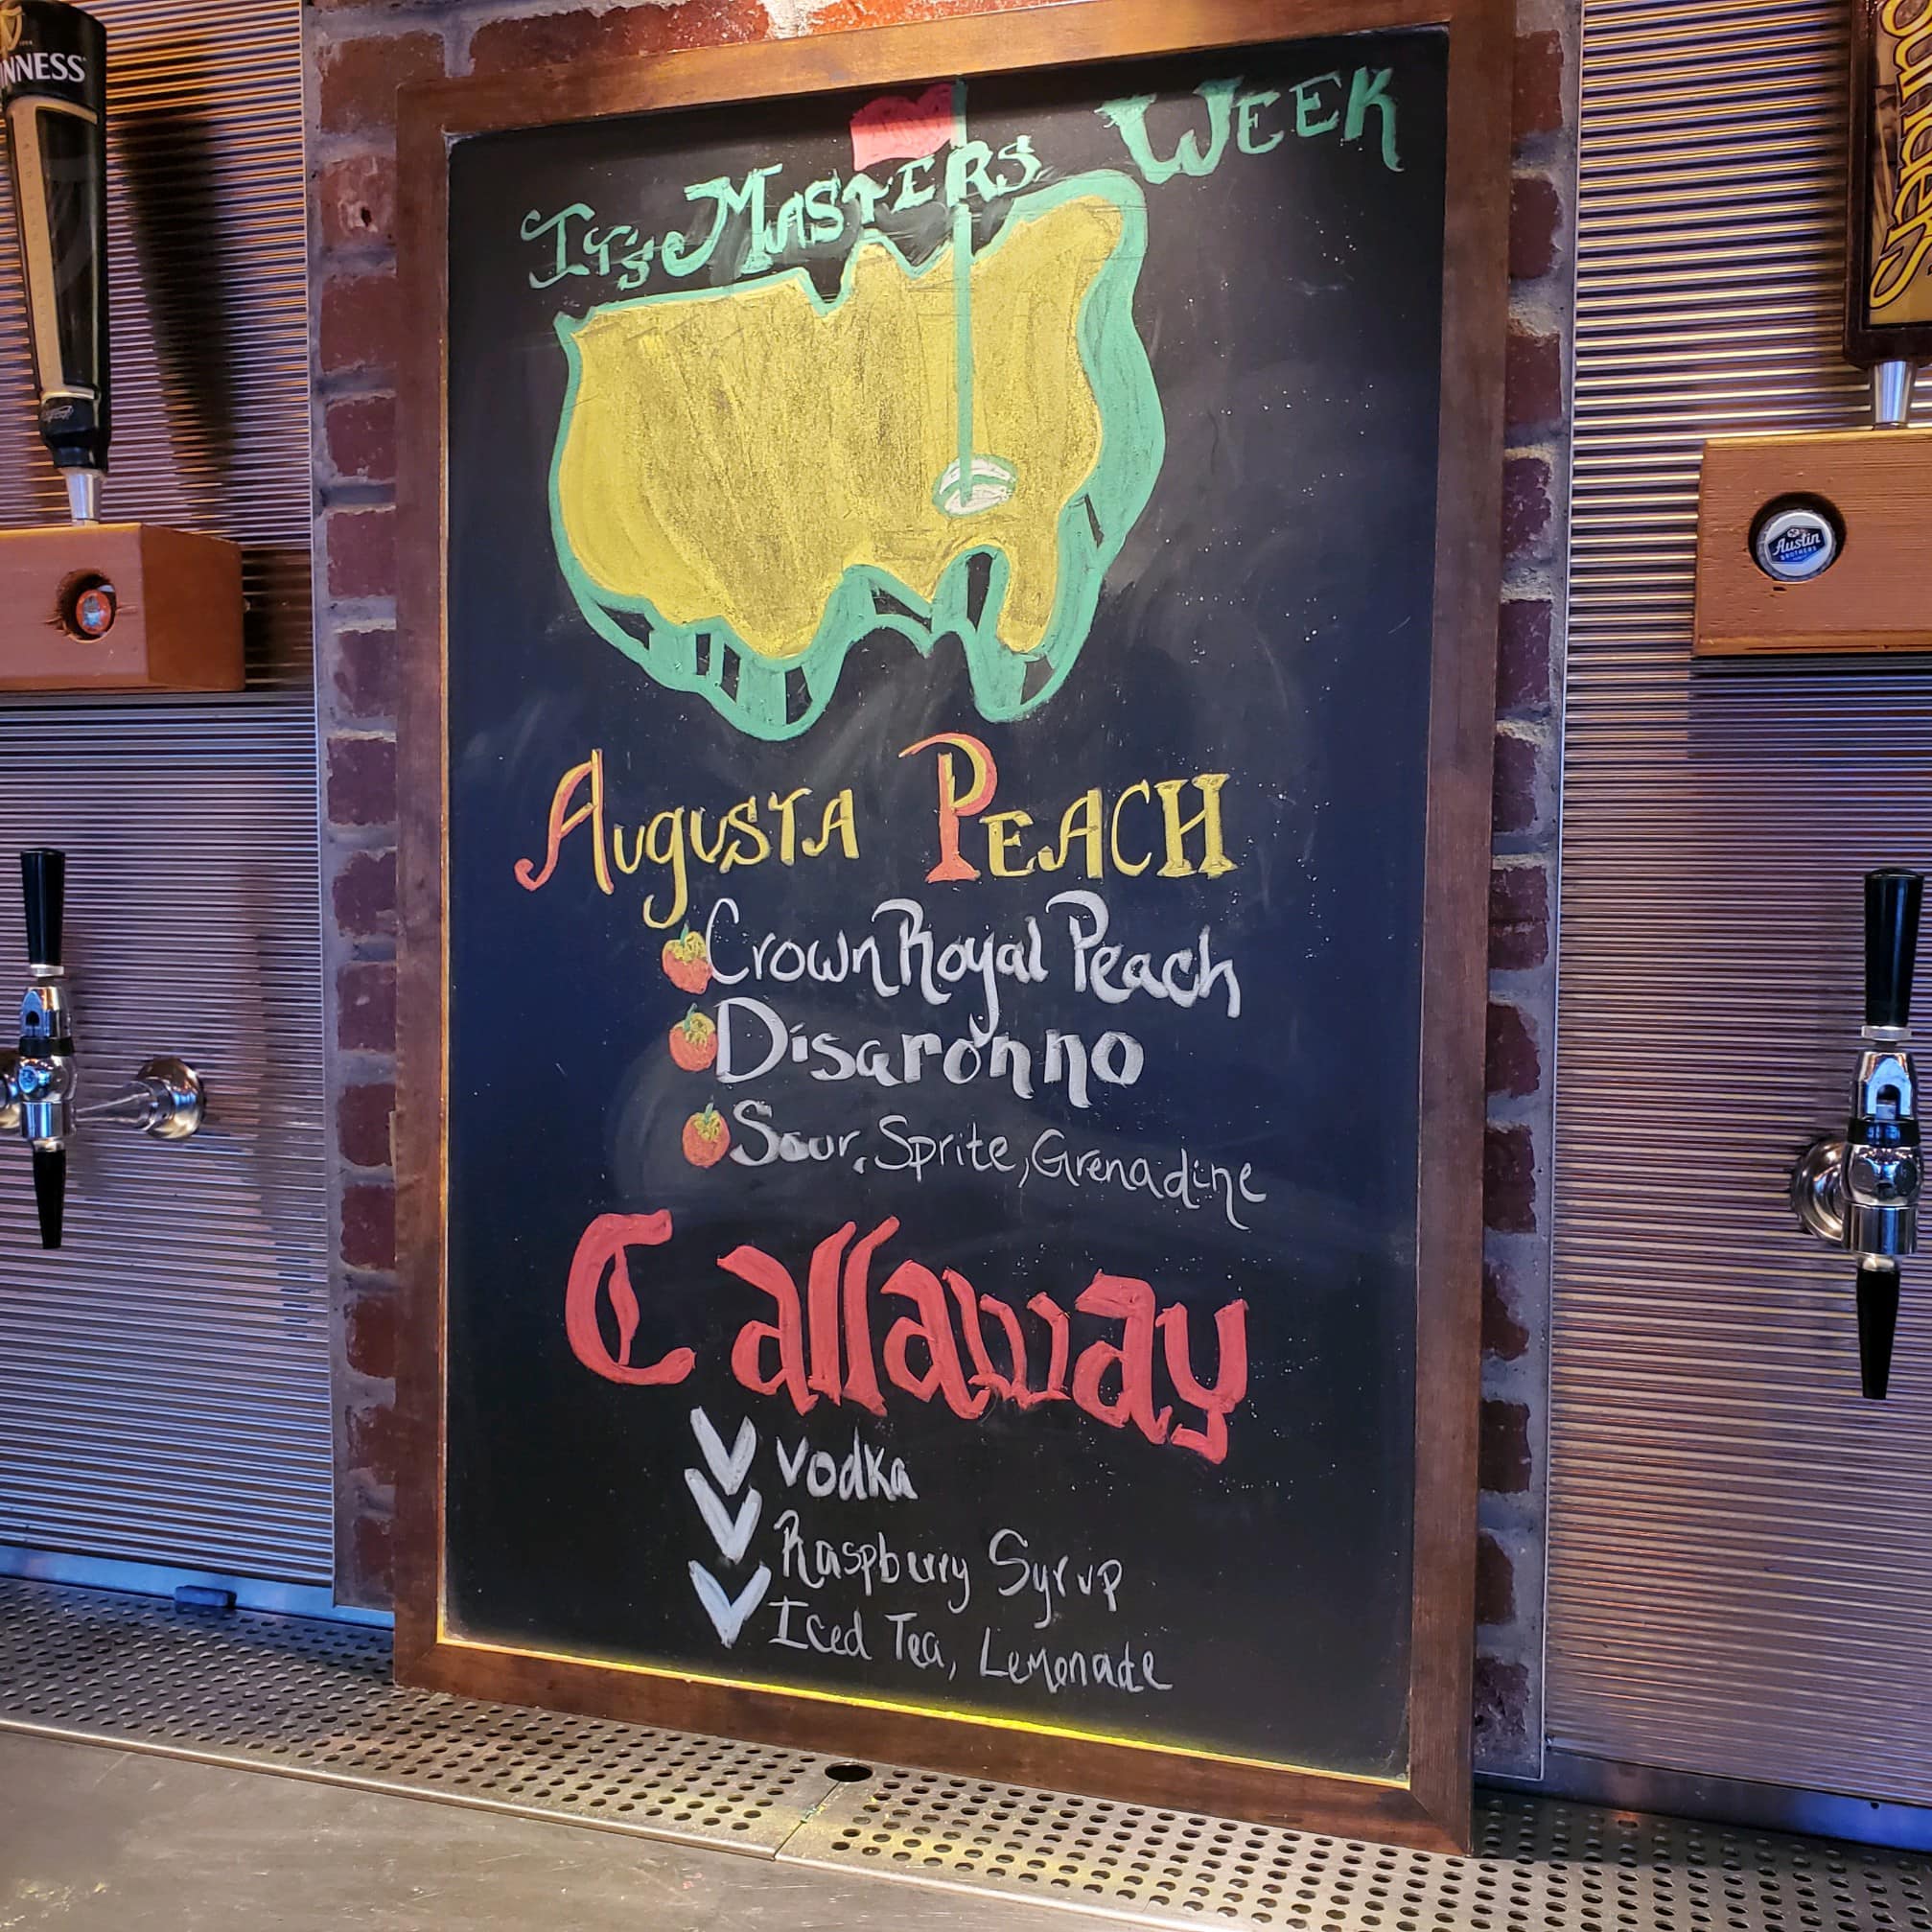 INNESS
Its Masters Week
Augusta Peach
Crown Royal Peach
Disaronno
Sour, Sprite, Grenadine
Callaway
Vodka
Raspberry Syrup
Iced Tea, Lemonade
Austin
BROTHERS